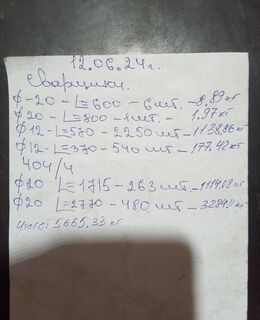 12.06.24г.
Сварщики.
ф-20 - L=600 - 6 шт. - 8.89 кг
ф20 - L=800 - 1 шт. - 1.97 кг
ф12 - L=570 - 2250 шт - 1138.86 кг
ф12 - L=370 - 540 шт - 177.42 кг
404/4
ф20 L=1715 - 263 шт. - 1114.08 кг
ф20 L=2770 - 480 шт - 3284.11 кг
итого: 5665.33 кг